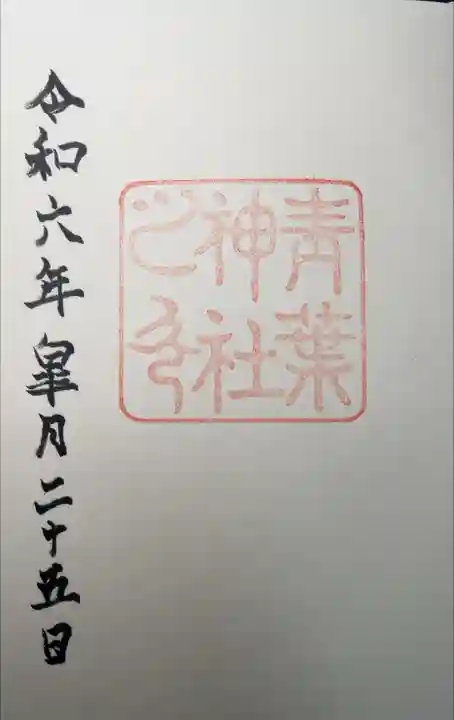 青葉
神社
之印
令和六年皐月二十五日